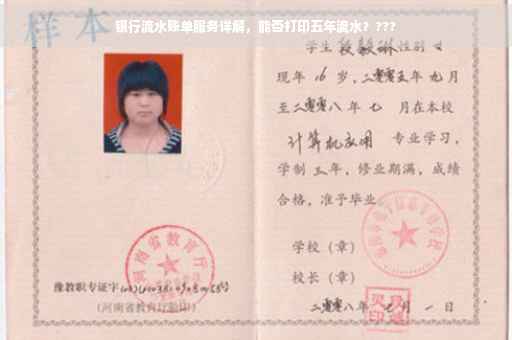 银行流水账单服务详解，能否打印五年流水？???
样本
学生段毅琳性别女
现年16岁，二零零五年九月
至二零零八年七月在本校
计算机应用专业学习，
学制三年，修业期满，成绩
合格，准予毕业
学校（章）
校长（章）
二零零八年七月一日
河南省教育厅
豫教职专证字
（河南省教育厅验印）